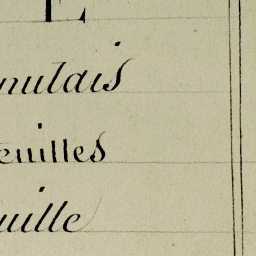 E
nulais
euilles
uille